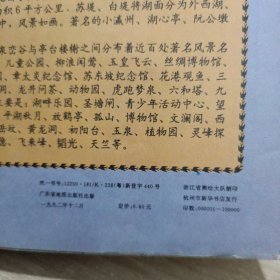 积6平方公里。苏堤、白堤将湖面分为外西湖、
中，风景如画。著名的小瀛州、湖心亭、阮公墩
泉壑谷与亭台楼榭之间分布着近百处著名风景名
儿童公园、柳浪闻莺、玉皇飞云、丝绸博物馆、
章太炎纪念馆、苏东坡纪念馆、花港观鱼、三
洞、龙井问茶、动物园、虎跑梦泉、六和塔、九
主要是：湖畔乐园、圣塘闸、青少年活动中心、望
平湖秋月、放鹤亭、孤山、博物馆、文澜阁、西
岳庙、黄龙洞、初阳台、玉泉、植物园、灵峰探
隐、飞来峰、韬光、天竺等。
统一书号：12250·181/K·228(粤)新登字440号
广东省地图出版社出版
一九九二年十二月
定价：0.80元
浙江省测绘大队制印
杭州市新华书店发行
印数：000001—100000